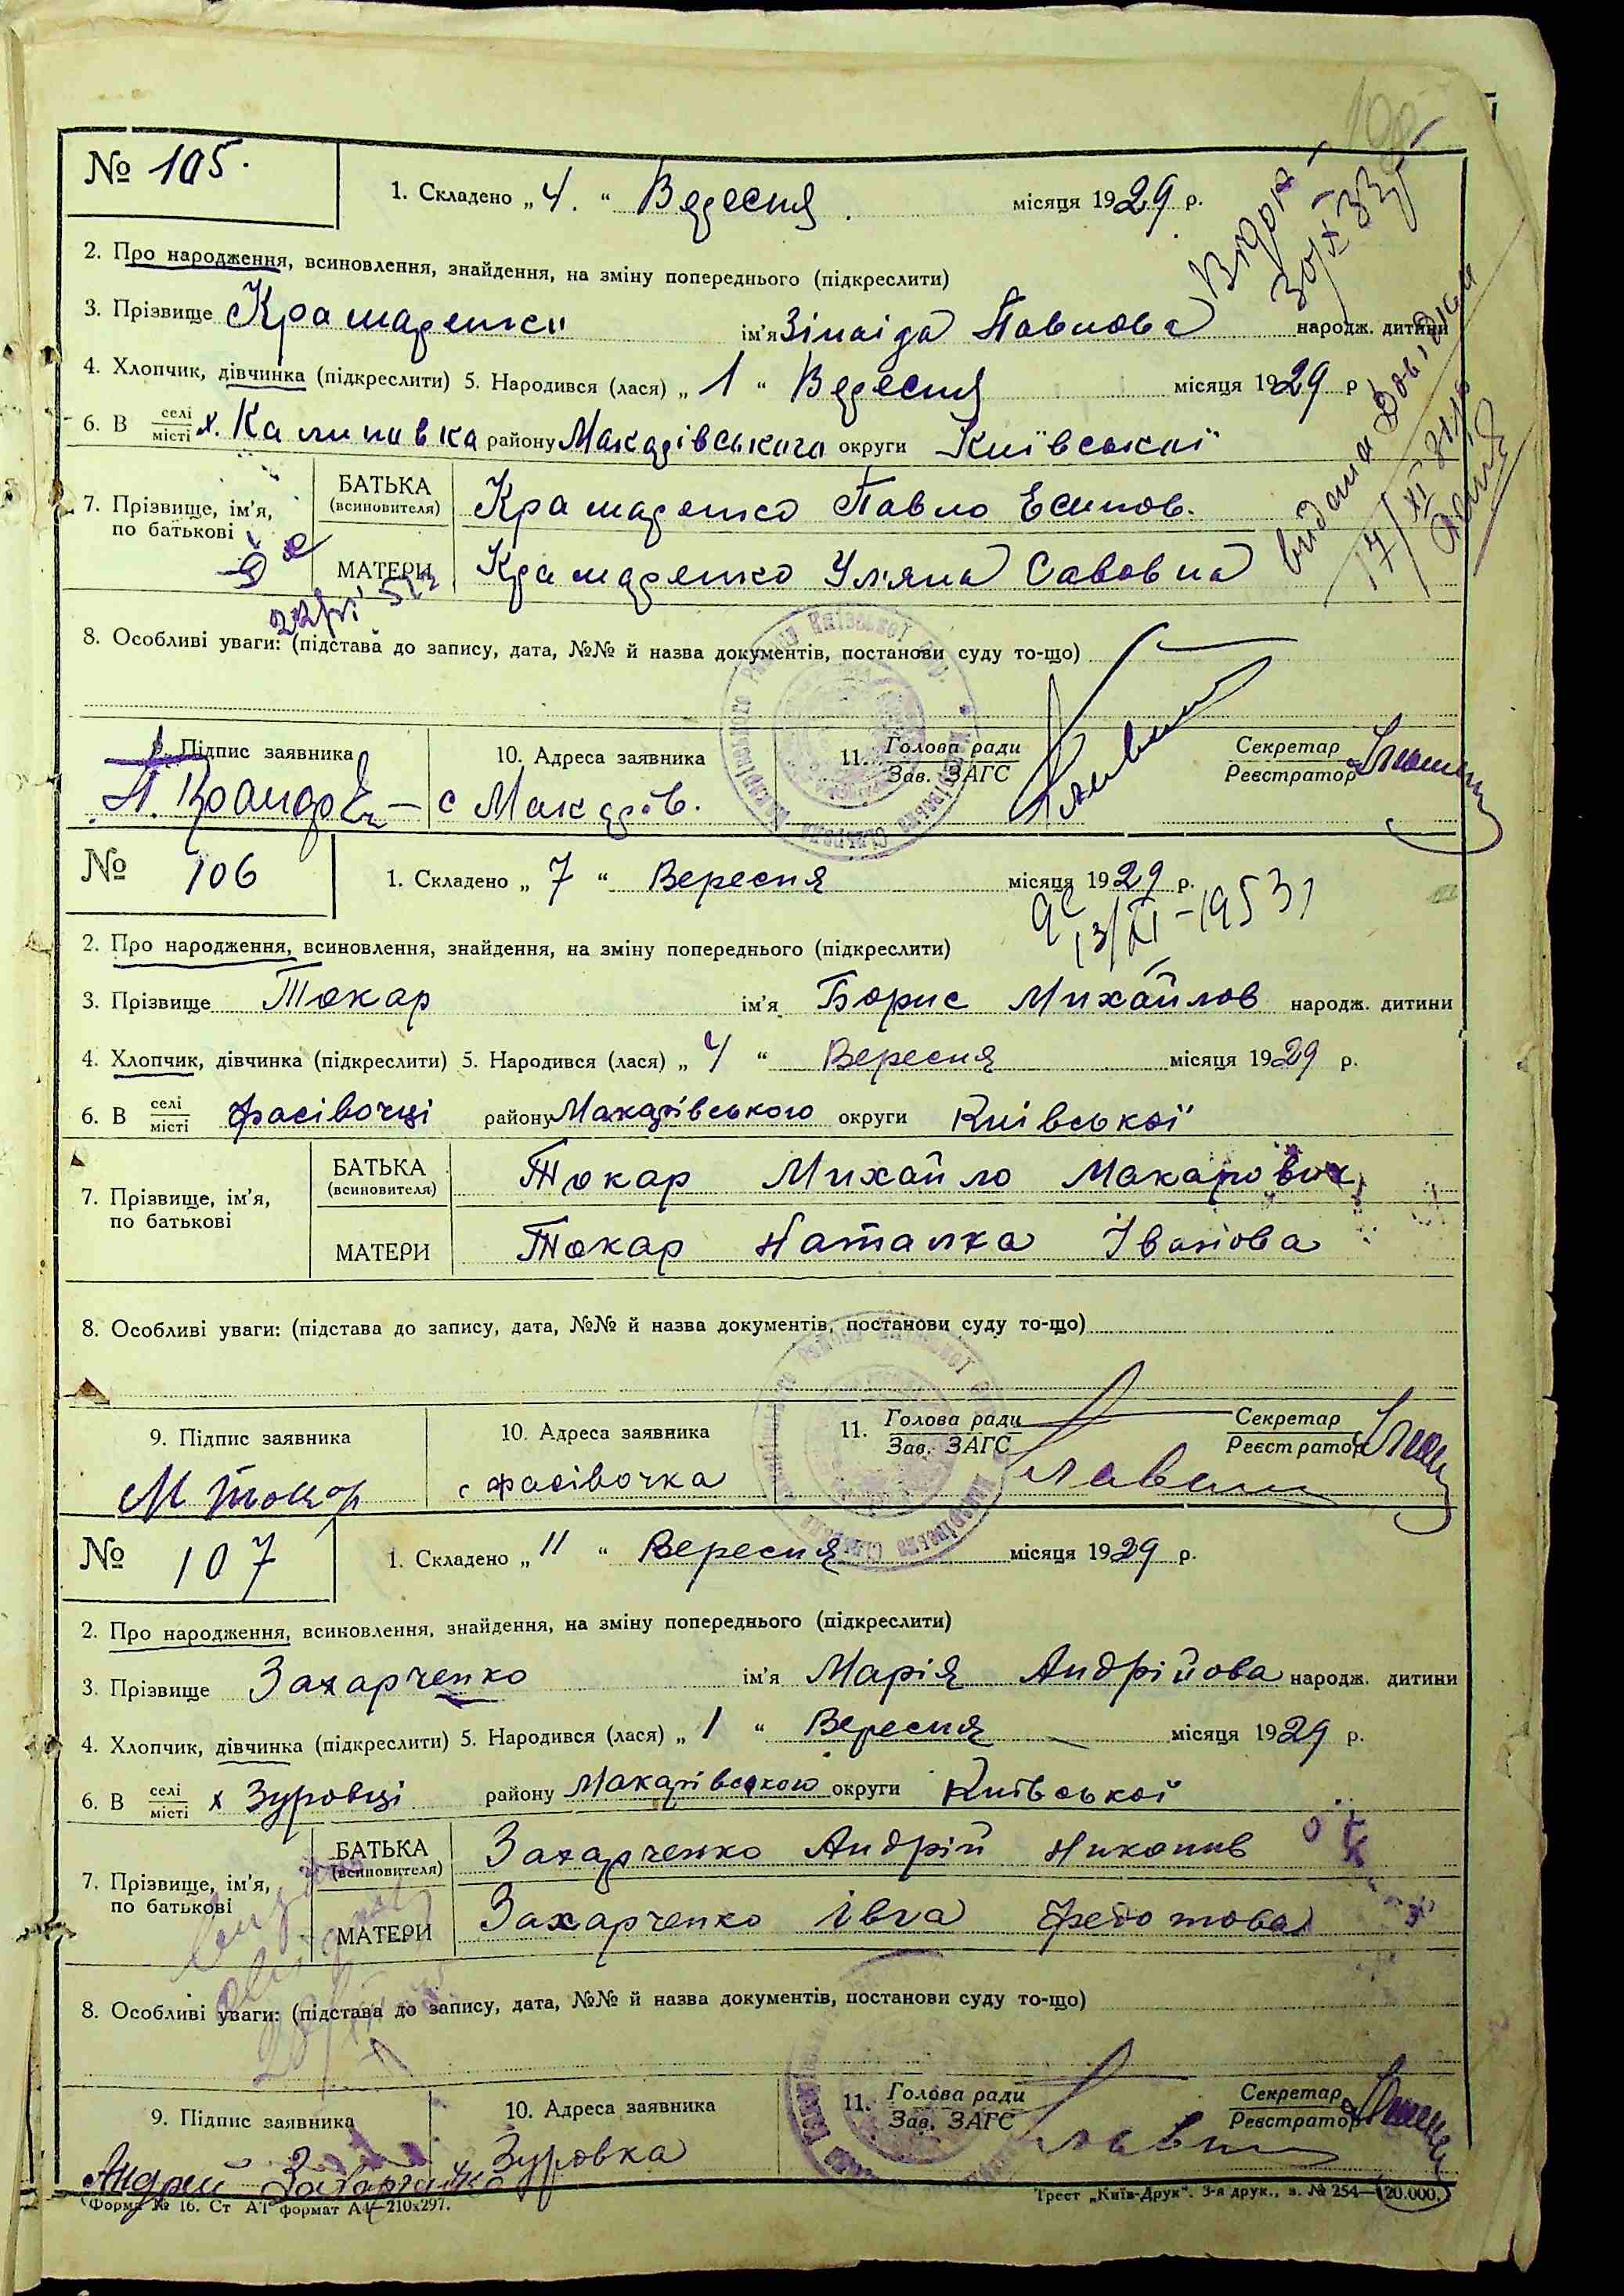 № 105.
1. Складено „ 4. “ Вересня. місяця 1929 р.
2. Про народження, всиновлення, знайдення, на зміну попереднього (підкреслити)
3. Прізвище Крамаренко ім’я Зінаіда Павлова народж. дитини
4. Хлопчик, дівчинка (підкреслити) 5. Народився (лася) „ 1 “ Вересня місяця 1929 р
6. В селі місті х. Калинивка району Макарівського округи Київської
7. Прізвище, ім’я, по батькові
БАТЬКА (всиновителя) Крамаренко Павло Есипов.
МАТЕРИ Крамаренко Уляна Савовна
Видана довідка
8. Особливі уваги: (підстава до запису, дата, №№ й назва документів, постанови суду то-що)
9. Підпис заявника 10. Адреса заявника 11. Голова ради Зав. ЗАГС Секретар Реєстратор
с Макарів.
№ 106
1. Складено „ 7 “ Вересня місяця 1929 р.
13/XI-1953
2. Про народження, всиновлення, знайдення, на зміну попереднього (підкреслити)
3. Прізвище Токар ім’я Борис Михайлов народж. дитини
4. Хлопчик, дівчинка (підкреслити) 5. Народився (лася) „ 4 “ Вересня місяця 1929 р.
6. В селі місті Фасівочці району Макарівського округи Київської
7. Прізвище, ім’я, по батькові
БАТЬКА (всиновителя) Токар Михайло Макарович
МАТЕРИ Токар Наталка Іванова
8. Особливі уваги: (підстава до запису, дата, №№ й назва документів, постанови суду то-що)
9. Підпис заявника 10. Адреса заявника 11. Голова ради Зав. ЗАГС Секретар Реєстратор
М Токар с Фасівочка
№ 107
1. Складено „ 11 “ Вересня місяця 1929 р.
2. Про народження, всиновлення, знайдення, на зміну попереднього (підкреслити)
3. Прізвище Захарченко ім’я Марія Андрійова народж. дитини
4. Хлопчик, дівчинка (підкреслити) 5. Народився (лася) „ 1 “ Вересня місяця 1929 р.
6. В селі місті х Зуровці району Макарівського округи Київської
7. Прізвище, ім’я, по батькові
БАТЬКА (всиновителя) Захарченко Андрій Никонив
МАТЕРИ Захарченко Івга Федотова
8. Особливі уваги: (підстава до запису, дата, №№ й назва документів, постанови суду то-що)
9. Підпис заявника 10. Адреса заявника 11. Голова ради Зав. ЗАГС Секретар Реєстратор
Андрей Захарченко Зуровка
Форма № 16. Ст А1 формат А4-210х297. Трест „Київ-Друк“. 3-я друк., з. № 254—20.000.